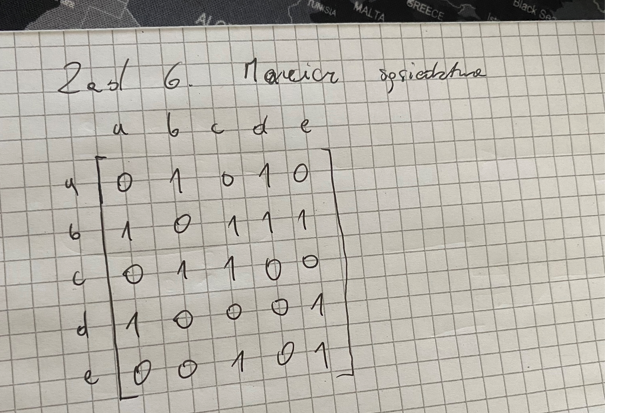 AL
TUNISIA
MALTA
GREECE
Black Sea
Zad 6. Macierz sąsiedztwa
a b c d e
a 0 1 0 1 0
b 1 0 1 1 1
c 0 1 1 0 0
d 1 0 0 0 1
e 0 0 1 0 1